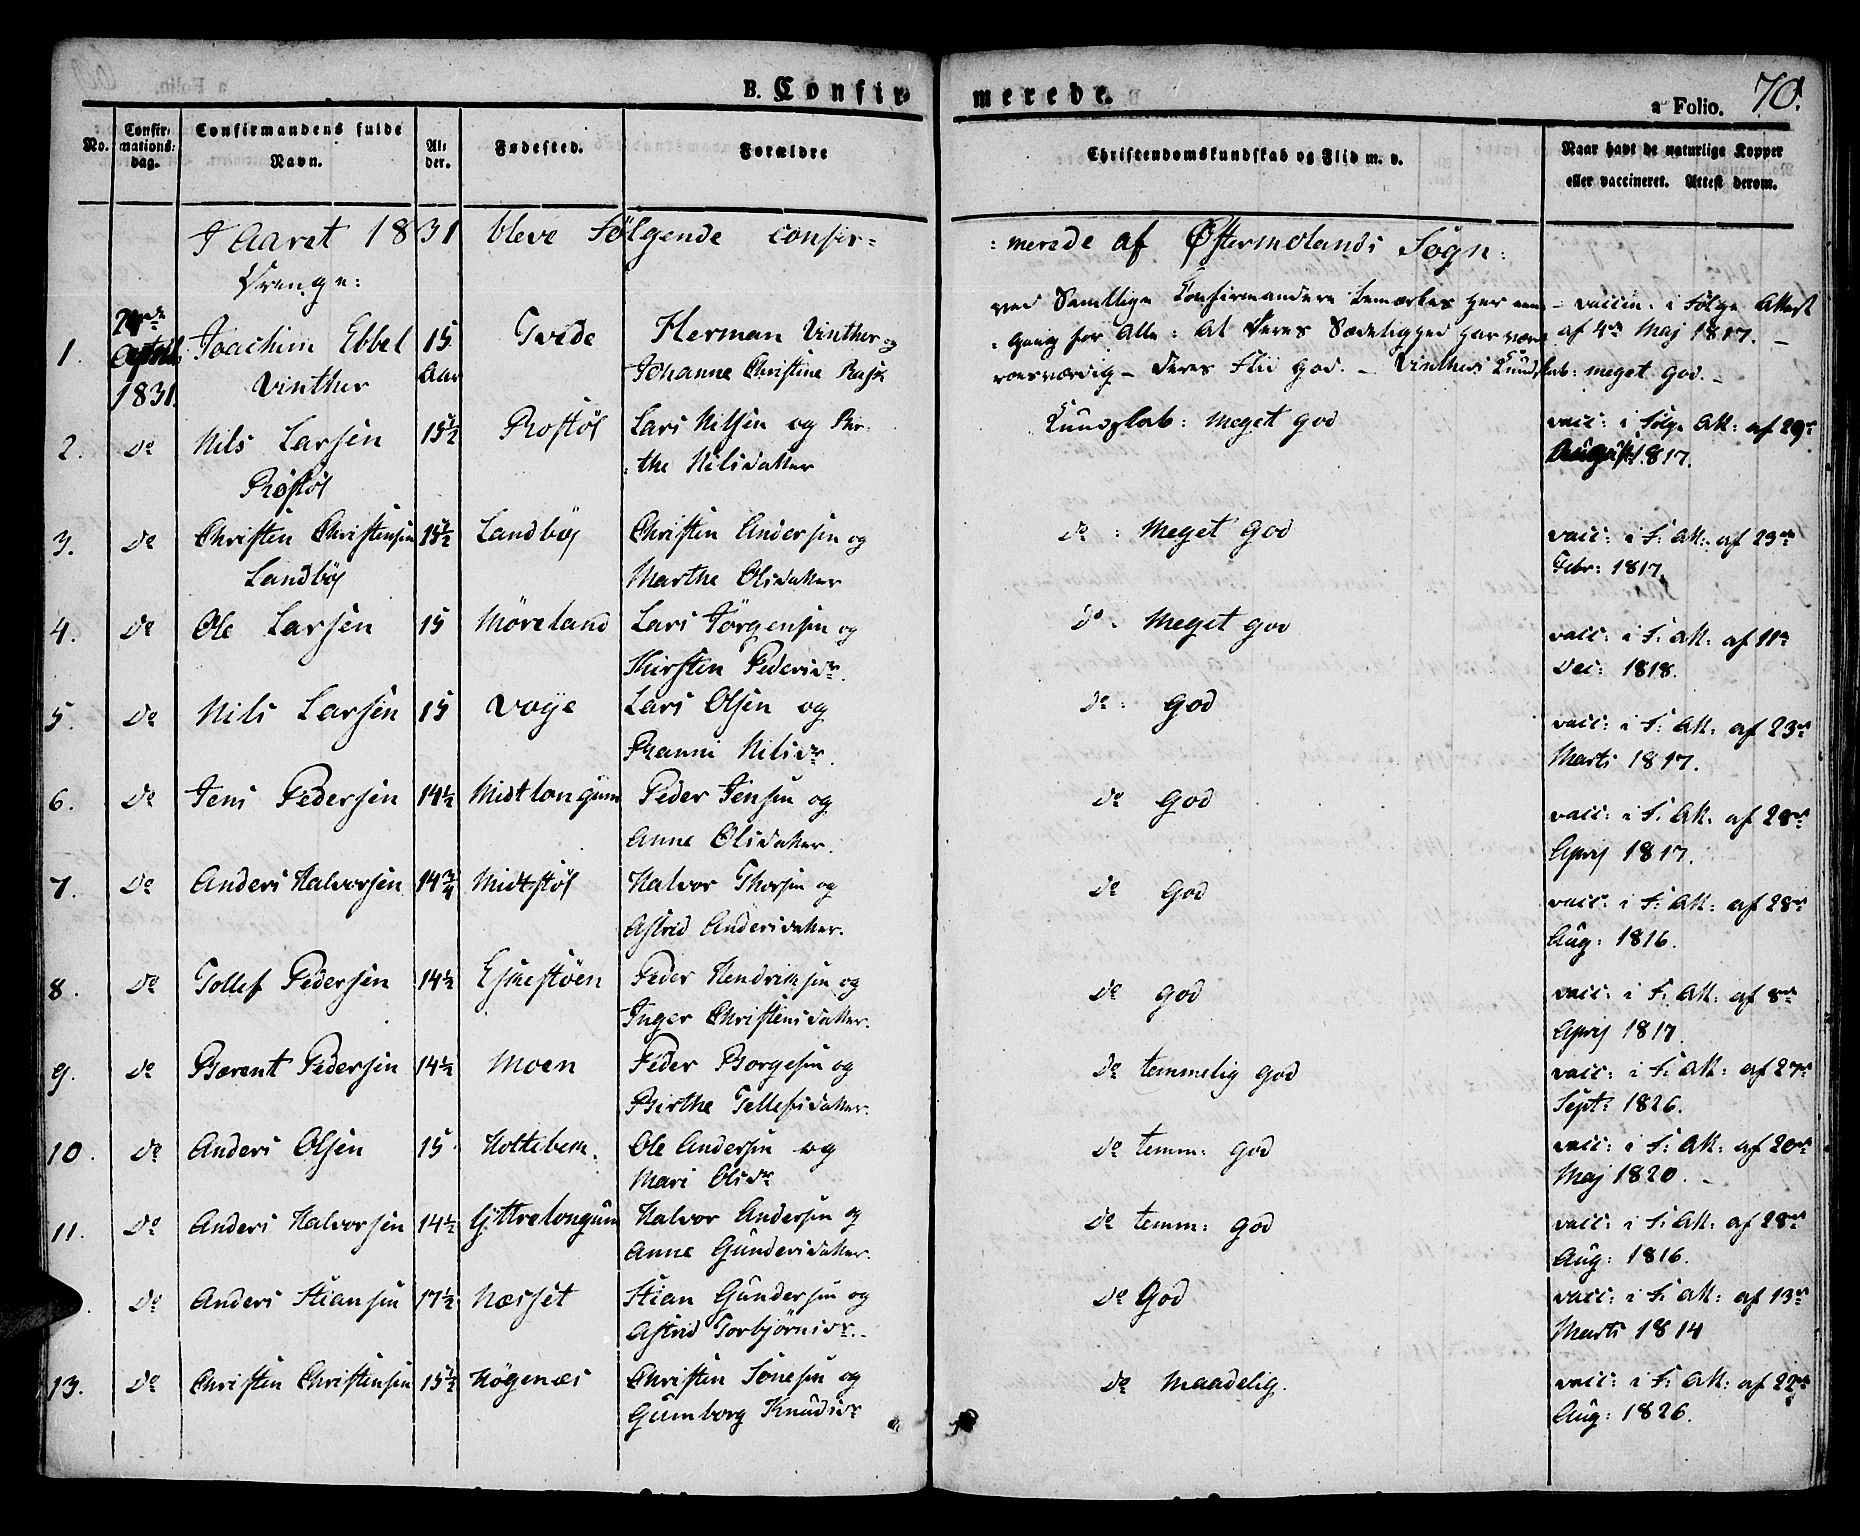 B. Confirmerede.
a Folio. 70.
No. Confirmationsdag. Confirmandens fulde Navn. Alder. Fødested. Forældre Christendomskundskab og Flid m. v. Naar havt de naturlige Kopper eller vaccineret. Attest derom.
I Aaret 1831 bleve følgende confir= :merede af Østermolands Sogn:
Drenge:
1. April 1831. Joachim Ebbel 15 Tvede Herman Vinther og ved Samtlige Confirmandere bemærkes her een vaccin. i Følge Attest
Vinther Aar Johanne Christine :gang for Alle: at Deres Sædelighed har været af 4de Maj 1817. –
roesværdig – Deres Flid God. – Vinthers Kundskab: meget god. –
2. do Nils Larsen 15½ Røstøl Lars Nilsen og Bir- Kundskab: meget god vacc: i Følge Att: af 29de
Røstøl :the Nilsdatter August 1817.
3. do Christen Christensen 15½ Landbøj Christen Andersen og do : meget god vacc: i F: Att: af 23de
Landbøj Marthe Olsdatter Febr: 1817.
4. do Ole Larsen 15 Møreland Lars Jørgensen og do . meget god vacc: i F: Att: af 11te
Kirsten Pedersdr. Dec: 1818.
5. do Nils Larsen 15 Voye Lars Olsen og do : god vacc: i F: Att: af 23de
Nilsdr. Marts 1817.
6. do Jens Pedersen 14½ Midtlongum Peder Jensen og do god vacc: i F: Att: af 28de
Anne Olsdatter. April 1817.
7. do Anders Halvorsen 14¾ Midtstøl Halvor Thorsen og do god vacc: i F: Att: af 28de
Astrid Andersdatter. Aug: 1816.
8. do Tollef Pedersen 14½ Ejkestøen Peder Hendriksen og do god vacc: i F: Att: af 8de
Inger Christensdatter. April 1817.
9. do Barent Pedersen 14½ Moen Peder Borgesen og do temmelig god vacc: i F: Att: af 27de
Birthe Tellefsdatter. Sept: 1826.
10. do Anders Olsen 15 Ole Andersen og do temm: god vacc: i F: Att: af 20de
Mari Olsdr Maj 1820. –
11. do Anders Halvorsen 14½ Yttrelongum Halvor Andersen og do temm: god vacc: i F: Att: af 28de
Anne Gundersdatter. Aug: 1816.
do Anders Stiansen 17½ Næsset Stian Gundersen og do God vacc: i F: Att: af 13de
Astrid Torbjørnsdr. Marts 1814
13. do Christen Christensen 15½ Høgenæs Christen Sønesen og do maadelig. vacc: i F: Att: af 22de
Gumborg Knudsdr Aug: 1826.